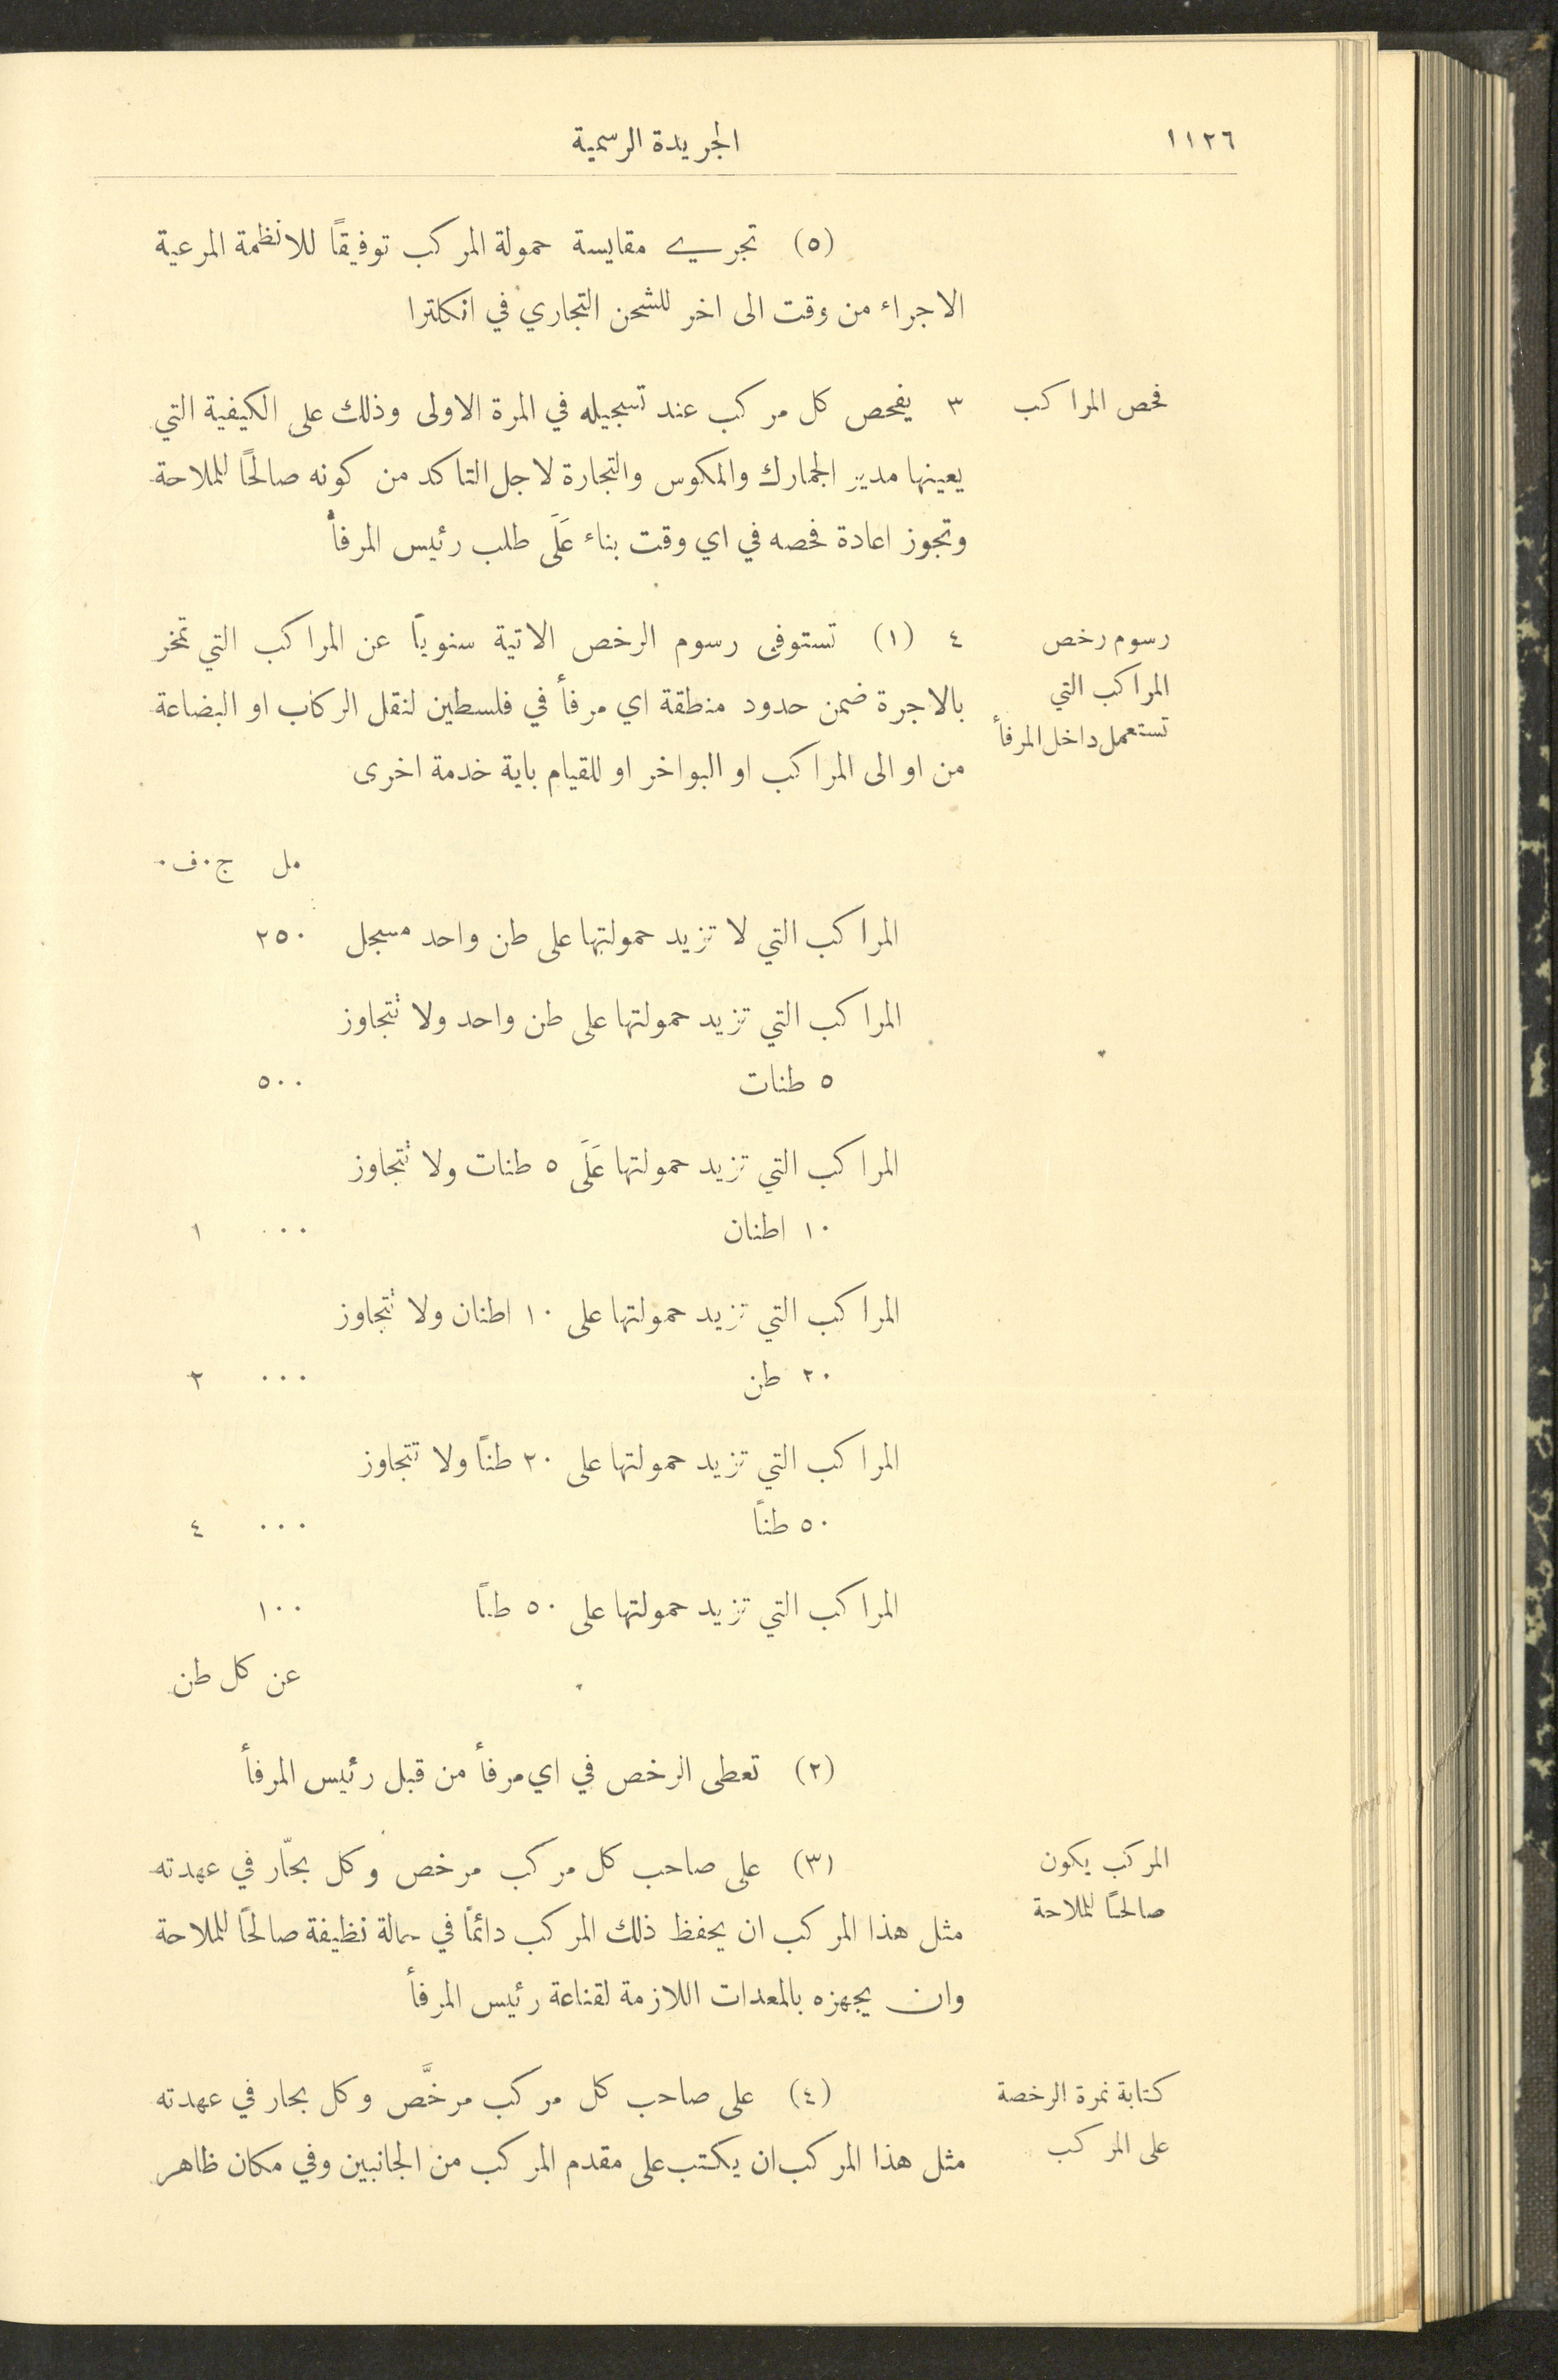 ١١٢٦ الجريدة الرسمية
(٥) تجرى مقايسة حمولة المركب توفيقاً للانظمة المرعية
الاجراء من وقت الى اخر للشحن التجاري في انكلترا
فحص المراكب
٣ يفحص كل مركب عند تسجيله في المرة الاولى وذلك على الكيفية التي
يعينها مدير الجمارك والمكوس والتجارة لاجل التاكد من كونه صالحًا للملاحة
وتجوز اعادة فحصه في اي وقت بناء عَلَى طلب رئيس المرفأ
رسوم رخص
المراكب التي
تستعمل داخل المرفأ
٤ (١) تستوفى رسوم الرخص الاتية سنوياً عن المراكب التي تمخر
بالاجرة ضمن حدود منطقة اي مرفأ في فلسطين لنقل الركاب او البضاعة
من او الى المراكب او البواخر او للقيام باية خدمة اخرى
مل ج٠ف٠
المراكب التي لا تزيد حمولتها على طن واحد مسجل ٢٥٠
المراكب التي تزيد حمولتها على طن واحد ولا تتجاوز
٥ طنات ٥٠٠
المراكب التي تزيد حمولتها عَلَى ٥ طنات ولا تتجاوز
١٠ اطنان ٠٠٠ ١
المراكب التي تزيد حمولتها على ١٠ اطنان ولا تتجاوز
٢٠ طن ٠٠٠ ٢
المراكب التي تزيد حمولتها على ٢٠ طنًا ولا تتجاوز
٥٠ طنًا ٠٠٠ ٤
المراكب التي تزيد حمولتها على ٥٠ طنًا ١٠٠
عن كل طن
(٢) تعطى الرخص في اي مرفأ من قبل رئيس المرفأ
المركب يكون
صالحًا للملاحة
(٣) على صاحب كل مركب مرخص وكل بحّار في عهدته
مثل هذا المركب ان يحفظ ذلك المركب دائمًا في حالة نظيفة صالحًا للملاحة
وان يجهزه بالمعدات اللازمة لقناعة رئيس المرفأ
كتابة نمرة الرخصة
على المركب
(٤) على صاحب كل مركب مرخَّص وكل بحار في عهدته
مثل هذا المركب ان يكتب على مقدم المركب من الجانبين وفي مكان ظاهر